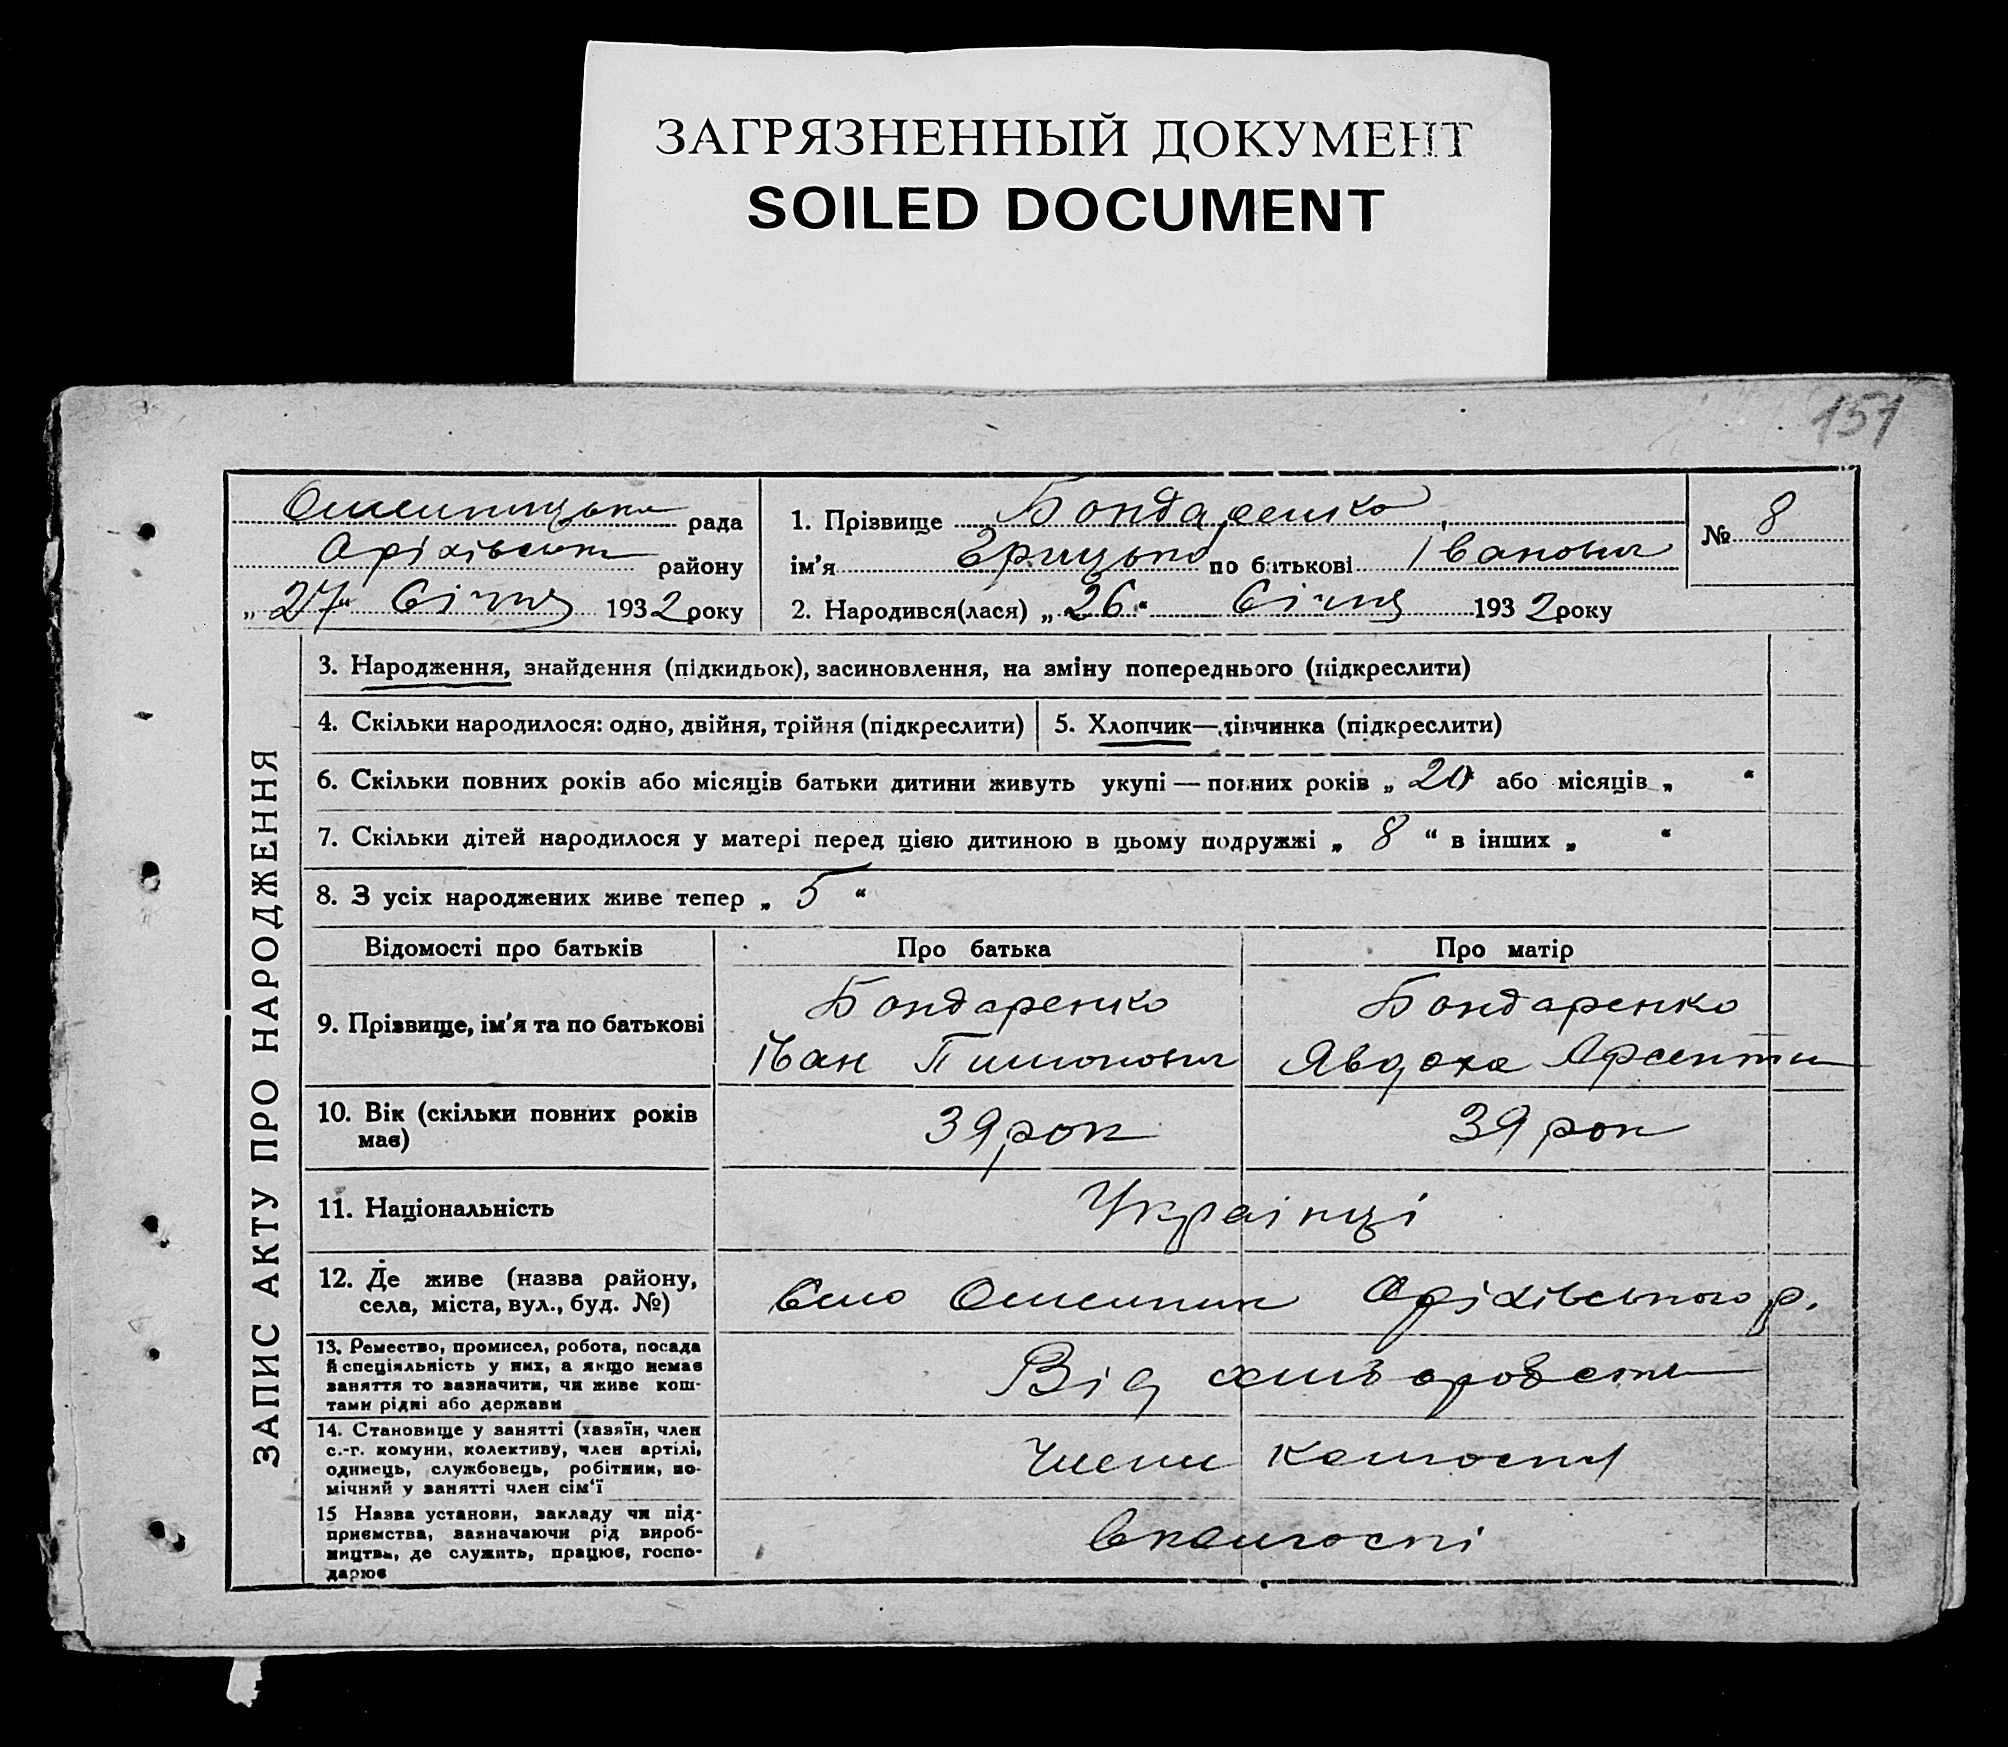 ЗАГРЯЗНЕННЫЙ ДОКУМЕНТ
SOILED DOCUMENT
151
рада
району
„27“ Січня 1932 року
1. Прізвище Бондаренко
ім'я Грицько по батькові Іванович
2. Народився(лася) „26“ Січня 1932 року
№ 8
ЗАПИС АКТУ ПРО НАРОДЖЕННЯ
3. Народження, знайдення (підкидьок), засиновлення, на зміну попереднього (підкреслити)
4. Скільки народилося: одно, двійня, трійня (підкреслити)
5. Хлопчик—дівчинка (підкреслити)
6. Скільки повних років або місяців батьки дитини живуть укупі — повних років „ 20 або місяців „ “
7. Скільки дітей народилося у матері перед цією дитиною в цьому подружжі „ 8 “ в інших „ “
8. З усіх народжених живе тепер „ 5 “
Відомості про батьків
Про батька
Про матір
9. Прізвище, ім'я та по батькові
Бондаренко
Іван
Бондаренко
Явдоха
10. Вік (скільки повних років
має)
39 рок
39 рок
11. Національність
Украінці
12. Де живе (назва району,
села, міста, вул., буд. №)
Село Оріхівського р.
13. Ремество, промисел, робота, посада
й спеціяльність у них, а якщо немає
заняття то зазначити, чи живе кош-
тами рідні або держави
Від
14. Становище у занятті (хазяїн, член
с.-г. комуни, колективу, член артілі,
одинець, службовець, робітник, по-
мічний у занятті член сім'ї
Члени колгоспу
15 Назва установи, закладу чи під-
приємства, зазначаючи рід вироб-
ництва, де служить, працює, госпо-
дарює
В колгоспі